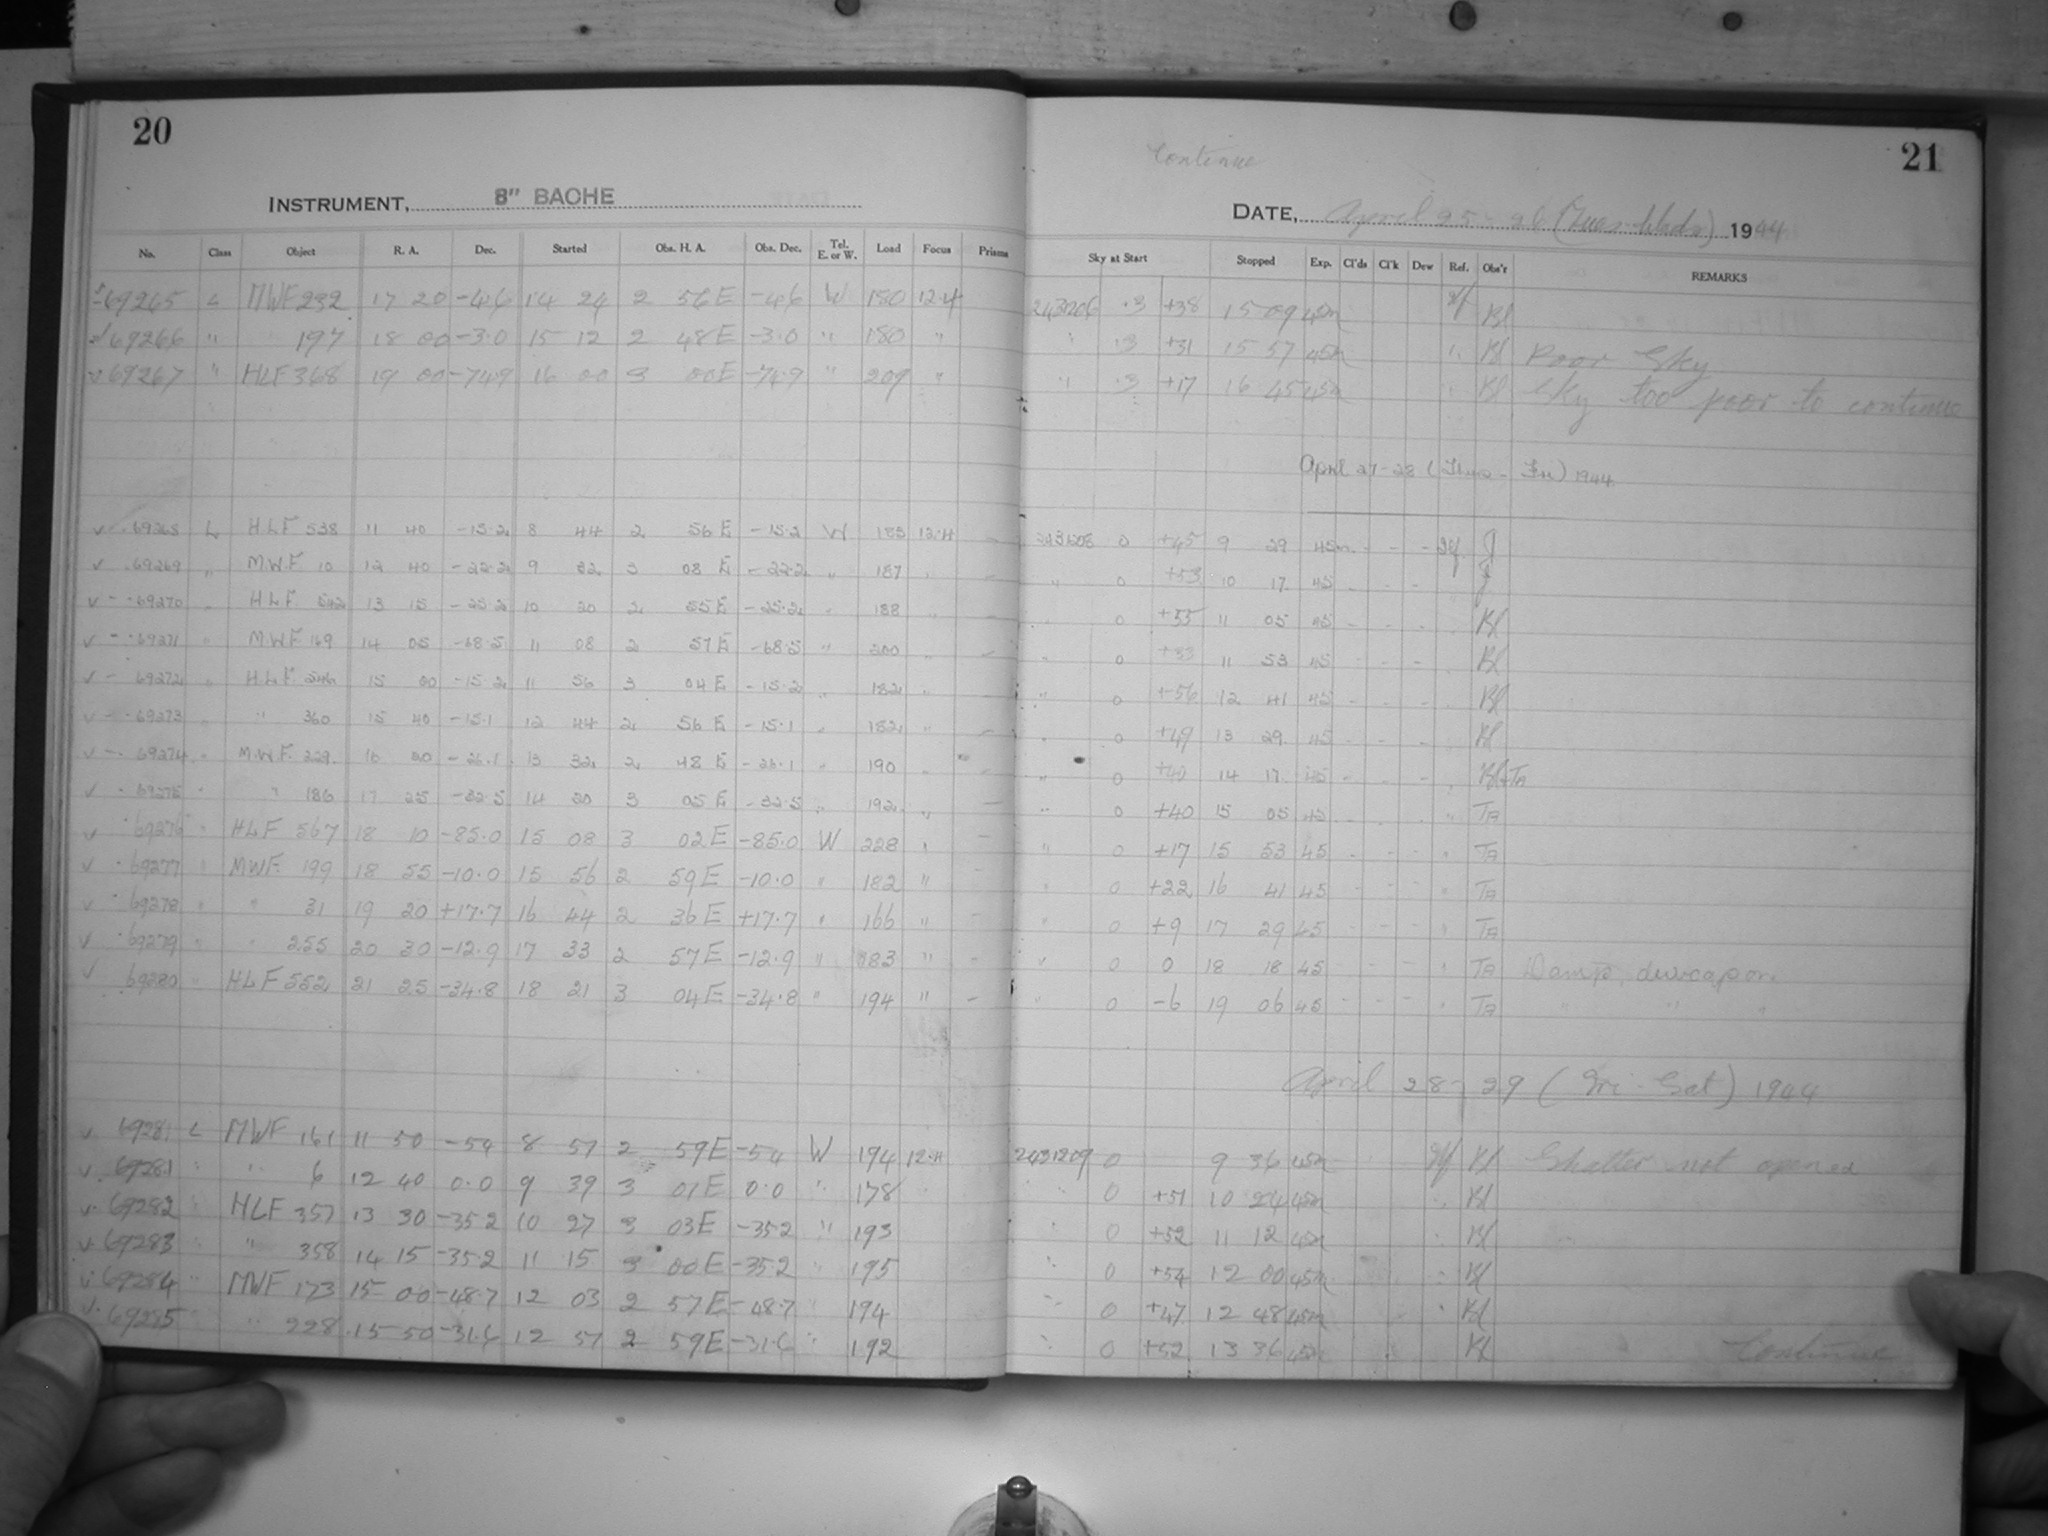 20
INSTRUMENT, 8" BACHE
No. Class Object R. A. Dec. Started Obs. H. A. Obs. Dec. Tel. E. or W. Load Focus Prisms
69265 L MWF 232 17 20 -46 14 24 2 56 E -46 W 180 12.4
69266 " 197 18 00 -3.0 15 12 2 48 E -3.0 " 180 "
69267 " HLF 368 19 00 -74.9 16 00 3 00 E -74.9 " 209 "
69268 L HLF 538 11 40 -15.2 8 44 2 56 E -15.2 W 183 12.4
69269 " M.W.F. 10 12 40 -22.2 9 32 3 08 E -22.2 " 187 "
69270 " HLF. 542 13 15 -25.2 10 20 2 55 E -25.2 " 188 "
69271 " M.W.F. 169 14 05 -68.5 11 08 2 57 E -68.5 " 200 "
69272 " H.L.F. 15 00 -15.2 11 56 3 04 E -15.2 " 182 "
69273 " " 360 15 40 -15.1 12 44 2 56 E -15.1 " 182 "
69274 " M.W.F. 229 16 20 -26.1 13 32 2 48 E -26.1 " 190 "
69275 " " 186 17 25 -32.5 14 20 3 05 E -32.5 " 192 "
69276 " HLF 567 18 10 -85.0 15 08 3 02 E -85.0 W 228 "
69277 " MWF. 199 18 55 -10.0 15 56 2 59 E -10.0 " 182 "
69278 " " 31 19 20 +17.7 16 44 2 36 E +17.7 " 166 "
69279 " " 255 20 30 -12.9 17 33 2 57 E -12.9 " 183 "
69280 " HLF 552 21 25 -34.8 18 21 3 04 E -34.8 " 194 "
69281 L MWF 161 11 50 -54 8 57 2 59 E -54 W 194 12.4
69281 " " 6 12 40 0.0 9 39 3 01 E 0.0 " 178
69282 " HLF 357 13 30 -35.2 10 27 3 03 E -35.2 " 193
69283 " " 358 14 15 -35.2 11 15 3 00 E -35.2 " 195
69284 " MWF 173 15 00 -48.7 12 03 2 57 E -48.7 " 194
69285 " " 228 15 50 -31.6 12 51 2 59 E -31.6 " 192
Continue
21
DATE, April 25-26 (Tues-Weds) 1944
Sky at Start Stopped Exp. Cl'ds Cl'k Dew Ref. Obs'r REMARKS
2431206 .3 +38 15 09 45m Bl
" .3 +31 15 57 45m " Bl Poor Sky
" .3 +17 16 45 45m " Bl Sky too poor to continue
April 27-28 (Thurs-Fri) 1944
2431208 0 +45 9 29 45m - - - J
" 0 +53 10 17 45 - - - J
" 0 +55 11 05 45 - - - Bl
" 0 +53 11 53 45 - - - Bl
" 0 +56 12 41 45 - - - Bl
" 0 +49 13 29 45 - - - Bl
" 0 14 17 45 - - - Bl+TA
" 0 +40 15 05 45 - - - " TA
" 0 +17 15 53 45 - - - " TA
" 0 +22 16 41 45 - - - " TA
" 0 +9 17 29 45 - - - " TA
" 0 0 18 18 45 - - - " TA Damp, dewcap on.
" 0 -6 19 06 45 - - - " TA " " "
April 28-29 (Fri-Sat) 1944
2431209 0 9 36 45m Bl Shutter not opened
" 0 +51 10 24 45m " Bl
" 0 +52 11 12 45m " Bl
" 0 +54 12 00 45m " Bl
" 0 +47 12 48 45m " Bl
" 0 +52 13 36 45m Bl
Continue